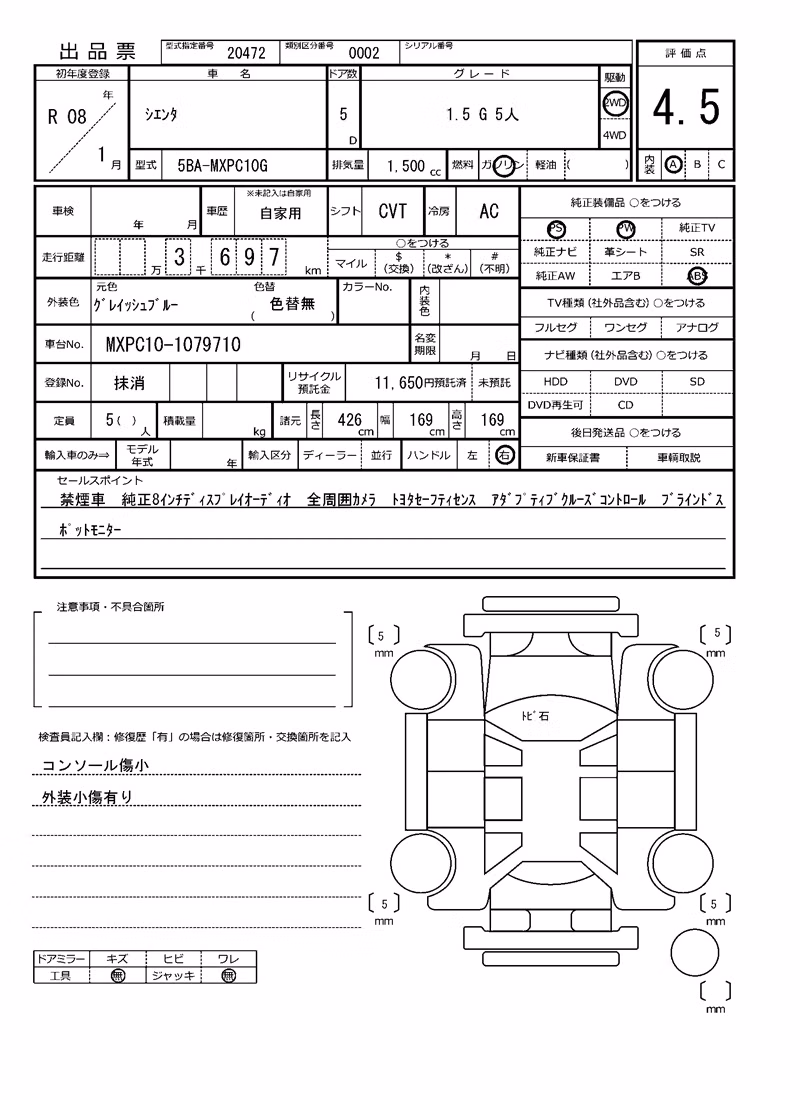 出品票 型式指定番号 20472 類別区分番号 0002 シリアル番号
評価点
4.5
内装 A B C
初年度登録 車名 ドア数 グレード 駆動
R 08 年 1 月 シエンタ 5 D 1.5 G 5人 2WD
4WD
型式 5BA-MXPC10G 排気量 1,500 cc 燃料 ガソリン 軽油 ( )
車検 年 月 車歴 ※未記入は自家用 自家用 シフト CVT 冷房 AC
走行距離 万 3 千 6 9 7 km ○をつける
マイル $(交換) *(改ざん) #(不明)
外装色 元色 グレイッシュブルー 色替 ( 色替無 ) カラーNo. 内装色
車台No. MXPC10-1079710 名変期限 月 日
登録No. 抹消 リサイクル預託金 11,650円預託済 未預託
定員 5( )人 積載量 kg 諸元 長さ 426 cm 幅 169 cm 高さ 169 cm
輸入車のみ⇒ モデル年式 年 輸入区分 ディーラー 並行 ハンドル 左 右
純正装備品 ○をつける
PS PW 純正TV
純正ナビ 革シート SR
純正AW エアB ABS
TV種類(社外品含む)○をつける
フルセグ ワンセグ アナログ
ナビ種類(社外品含む)○をつける
HDD DVD SD
DVD再生可 CD
後日発送品 ○をつける
新車保証書 車輌取説
セールスポイント
禁煙車 純正8インチディスプレイオーディオ 全周囲カメラ トヨタセーフティセンス アダプティブクルーズコントロール ブラインドス
ポットモニター
注意事項・不具合箇所
検査員記入欄：修復歴「有」の場合は修復箇所・交換箇所を記入
コンソール傷小
外装小傷有り
ドアミラー キズ ヒビ ワレ
工具 無 ジャッキ 無
[ 5 ] mm
[ 5 ] mm
トビ石
[ 5 ] mm
[ 5 ] mm
[ ] mm